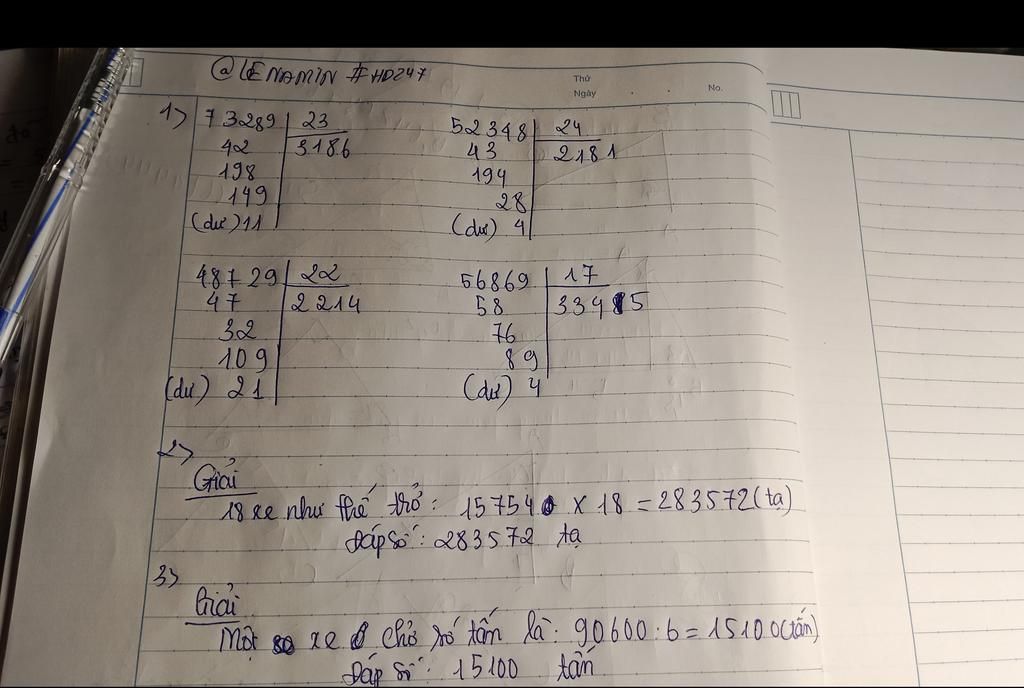 @LENAMIN #HD247
Thứ
Ngày . . No.
1> 73289 23
42 3186
198
149
(dư) 11
52348 24
43 2181
194
28
(dư) 4
48729 22
47 2214
32
109
(dư) 21
56869 17
58 3345
76
89
(dư) 4
2>
Giải
18 xe như thế trở: 15754 x 18 = 283572 (tạ)
Đáp số: 283572 tạ
3>
Giải
Một xe chở số tấn là: 90600 : 6 = 15100 (tấn)
Đáp số: 15100 tấn